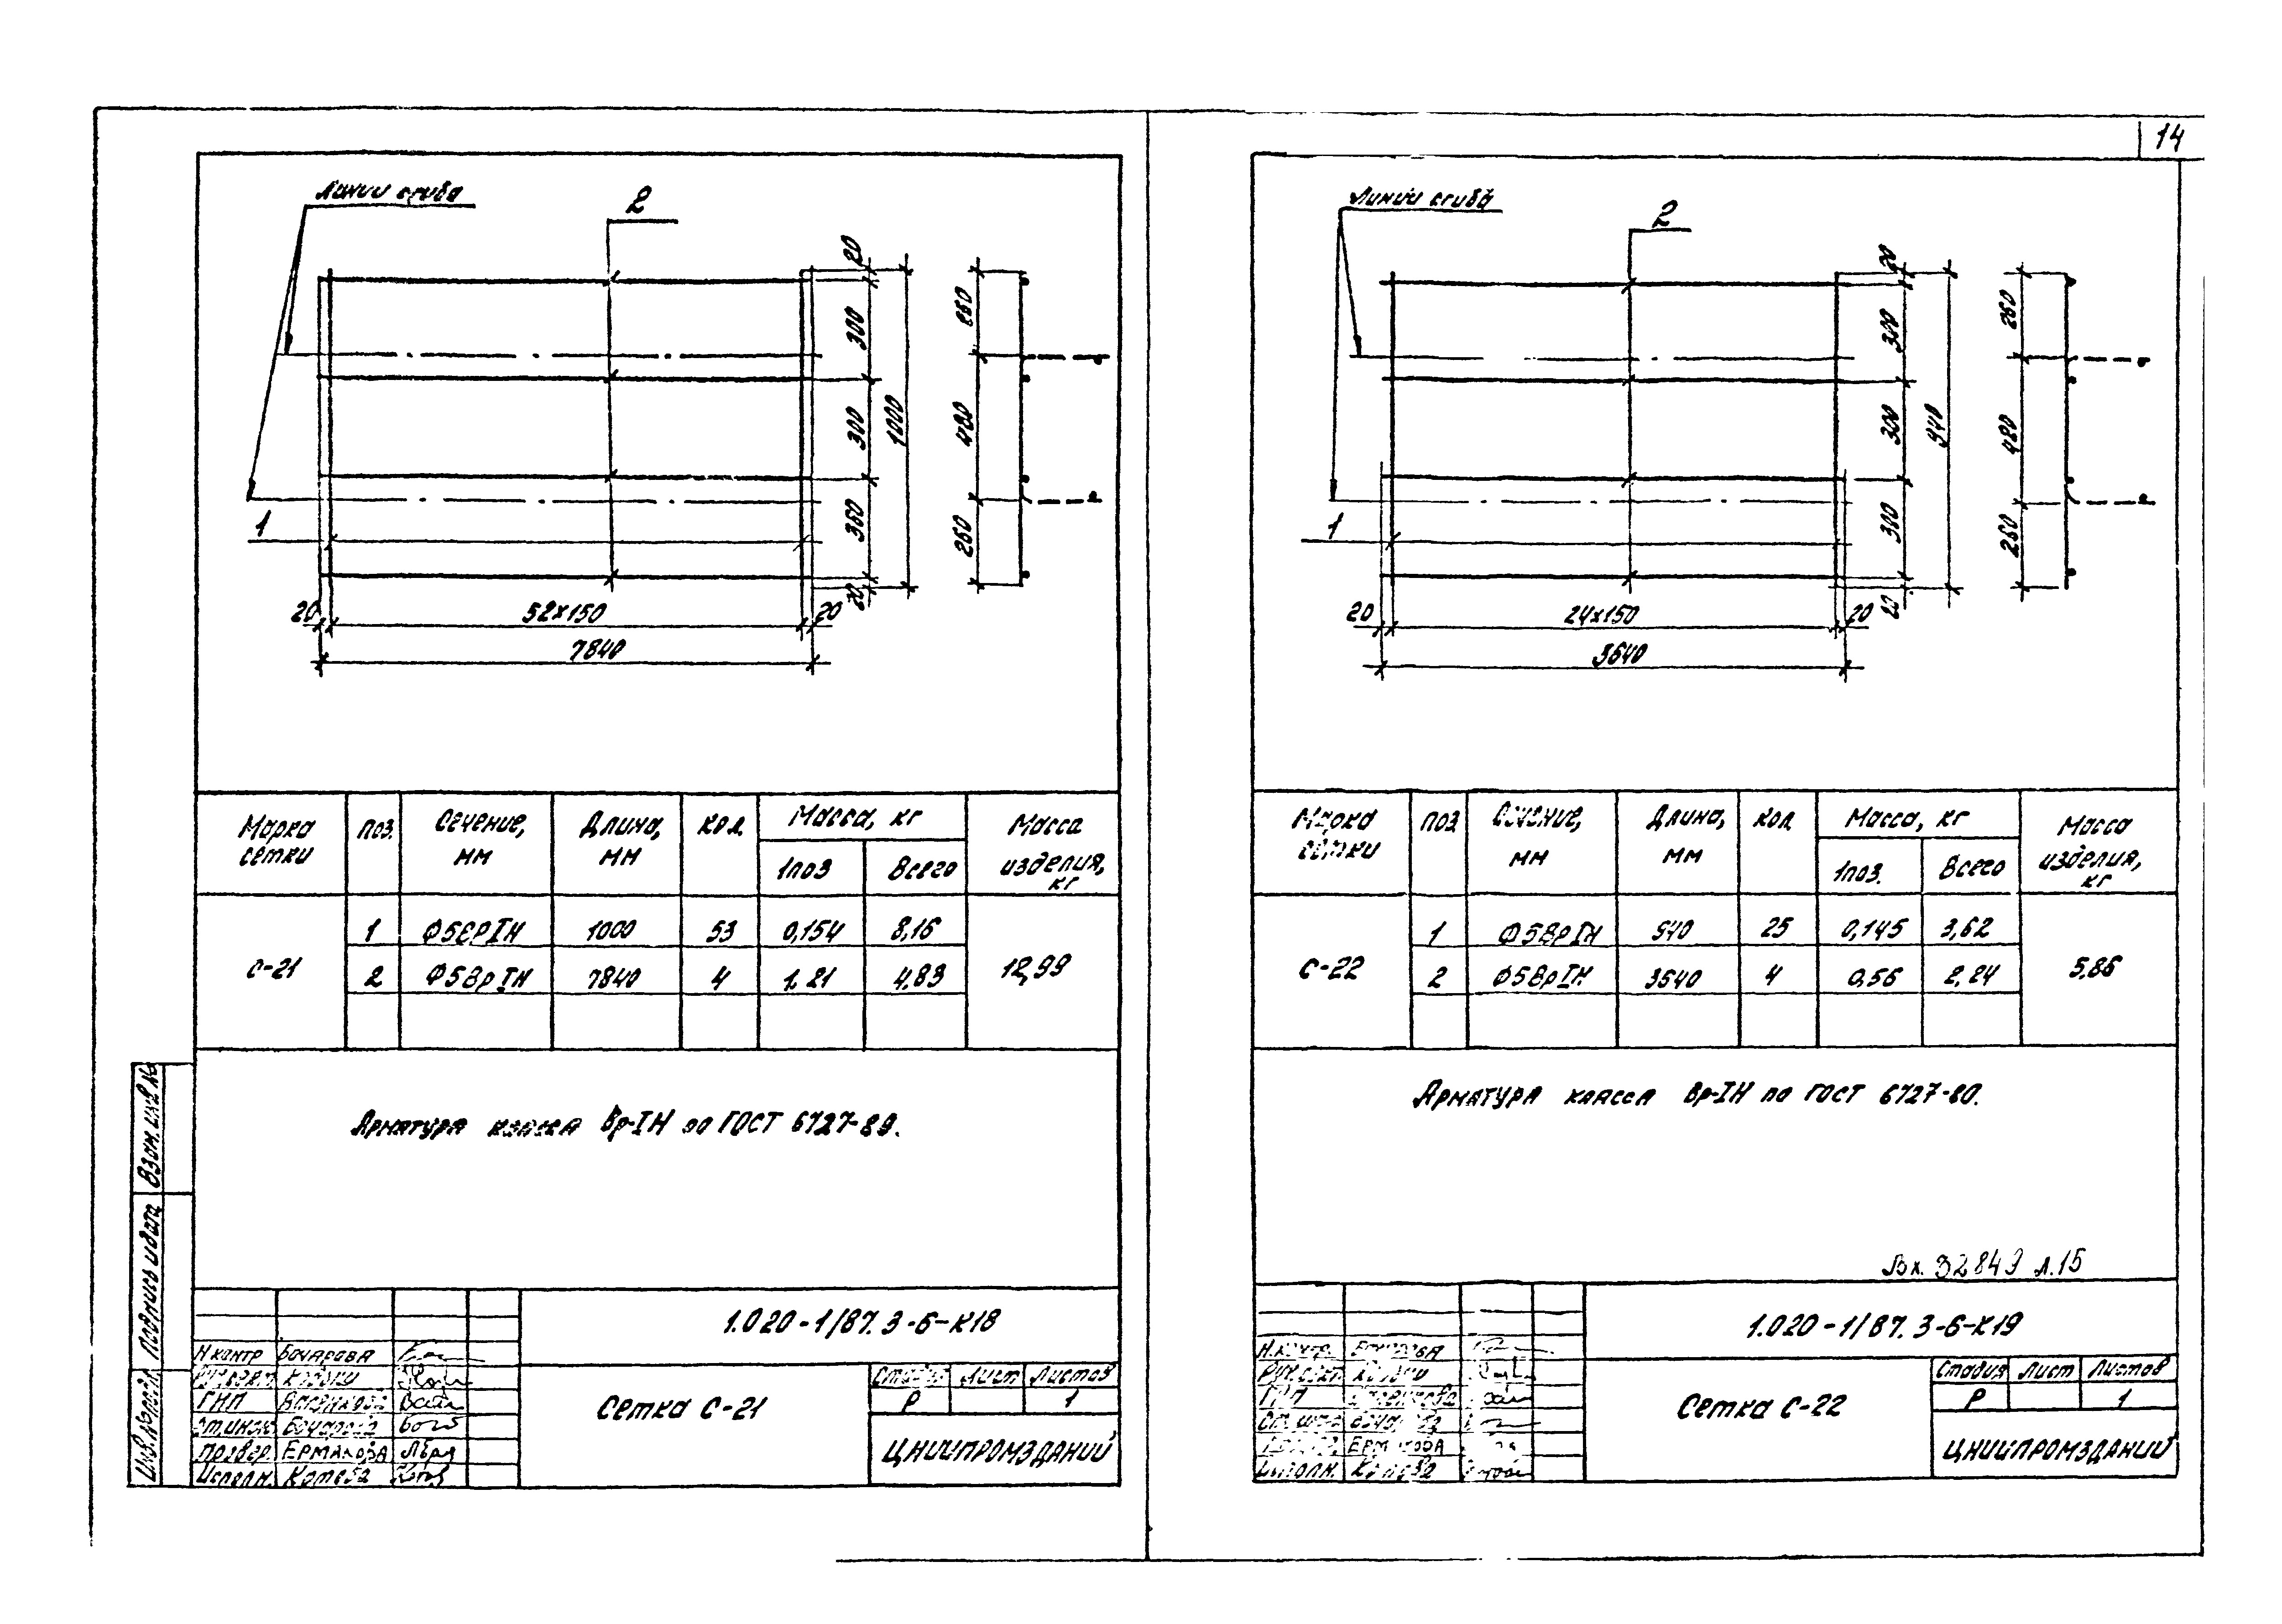 14
Линии сгиба
2
20
300
300
360
20
1000
260
480
260
1
20
52х150
20
7840
Марка сетки
поз.
Сечение, мм
Длина, мм
кол.
Масса, кг
1поз
Всего
Масса изделия, кг
С-21
1
Ф5ВрIН
1000
53
0,154
8,16
12,99
2
Ф5ВрIН
7840
4
1,21
4,83
Арматура класса Вр-IН по ГОСТ 6727-80.
Взам. инв. №
Подпись и дата
Инв. № подл.
1.020-1/87. 3-6-К18
Н.контр Бочарова
ГИП
Ст.инж. Бочарова
Провер. Ермакова
Исполн. Котова
Сетка С-21
Стадия Лист Листов
Р 1
ЦНИИПРОМЗДАНИЙ
Линии сгиба
2
20
300
300
300
20
940
260
480
260
1
20
24х150
20
3640
Марка сетки
поз
Сечение, мм
Длина, мм
кол
Масса, кг
1поз.
Всего
Масса изделия, кг
С-22
1
Ф5ВрIН
940
25
0,145
3,62
5,86
2
Ф5ВрIН
3640
4
0,56
2,24
Арматура класса Вр-IН по ГОСТ 6727-80.
32849 л.15
1.020-1/87. 3-6-К19
Н.контр. Бочарова
ГИП
Ермакова
Исполн. Котова
Сетка С-22
Стадия Лист Листов
Р 1
ЦНИИПРОМЗДАНИЙ